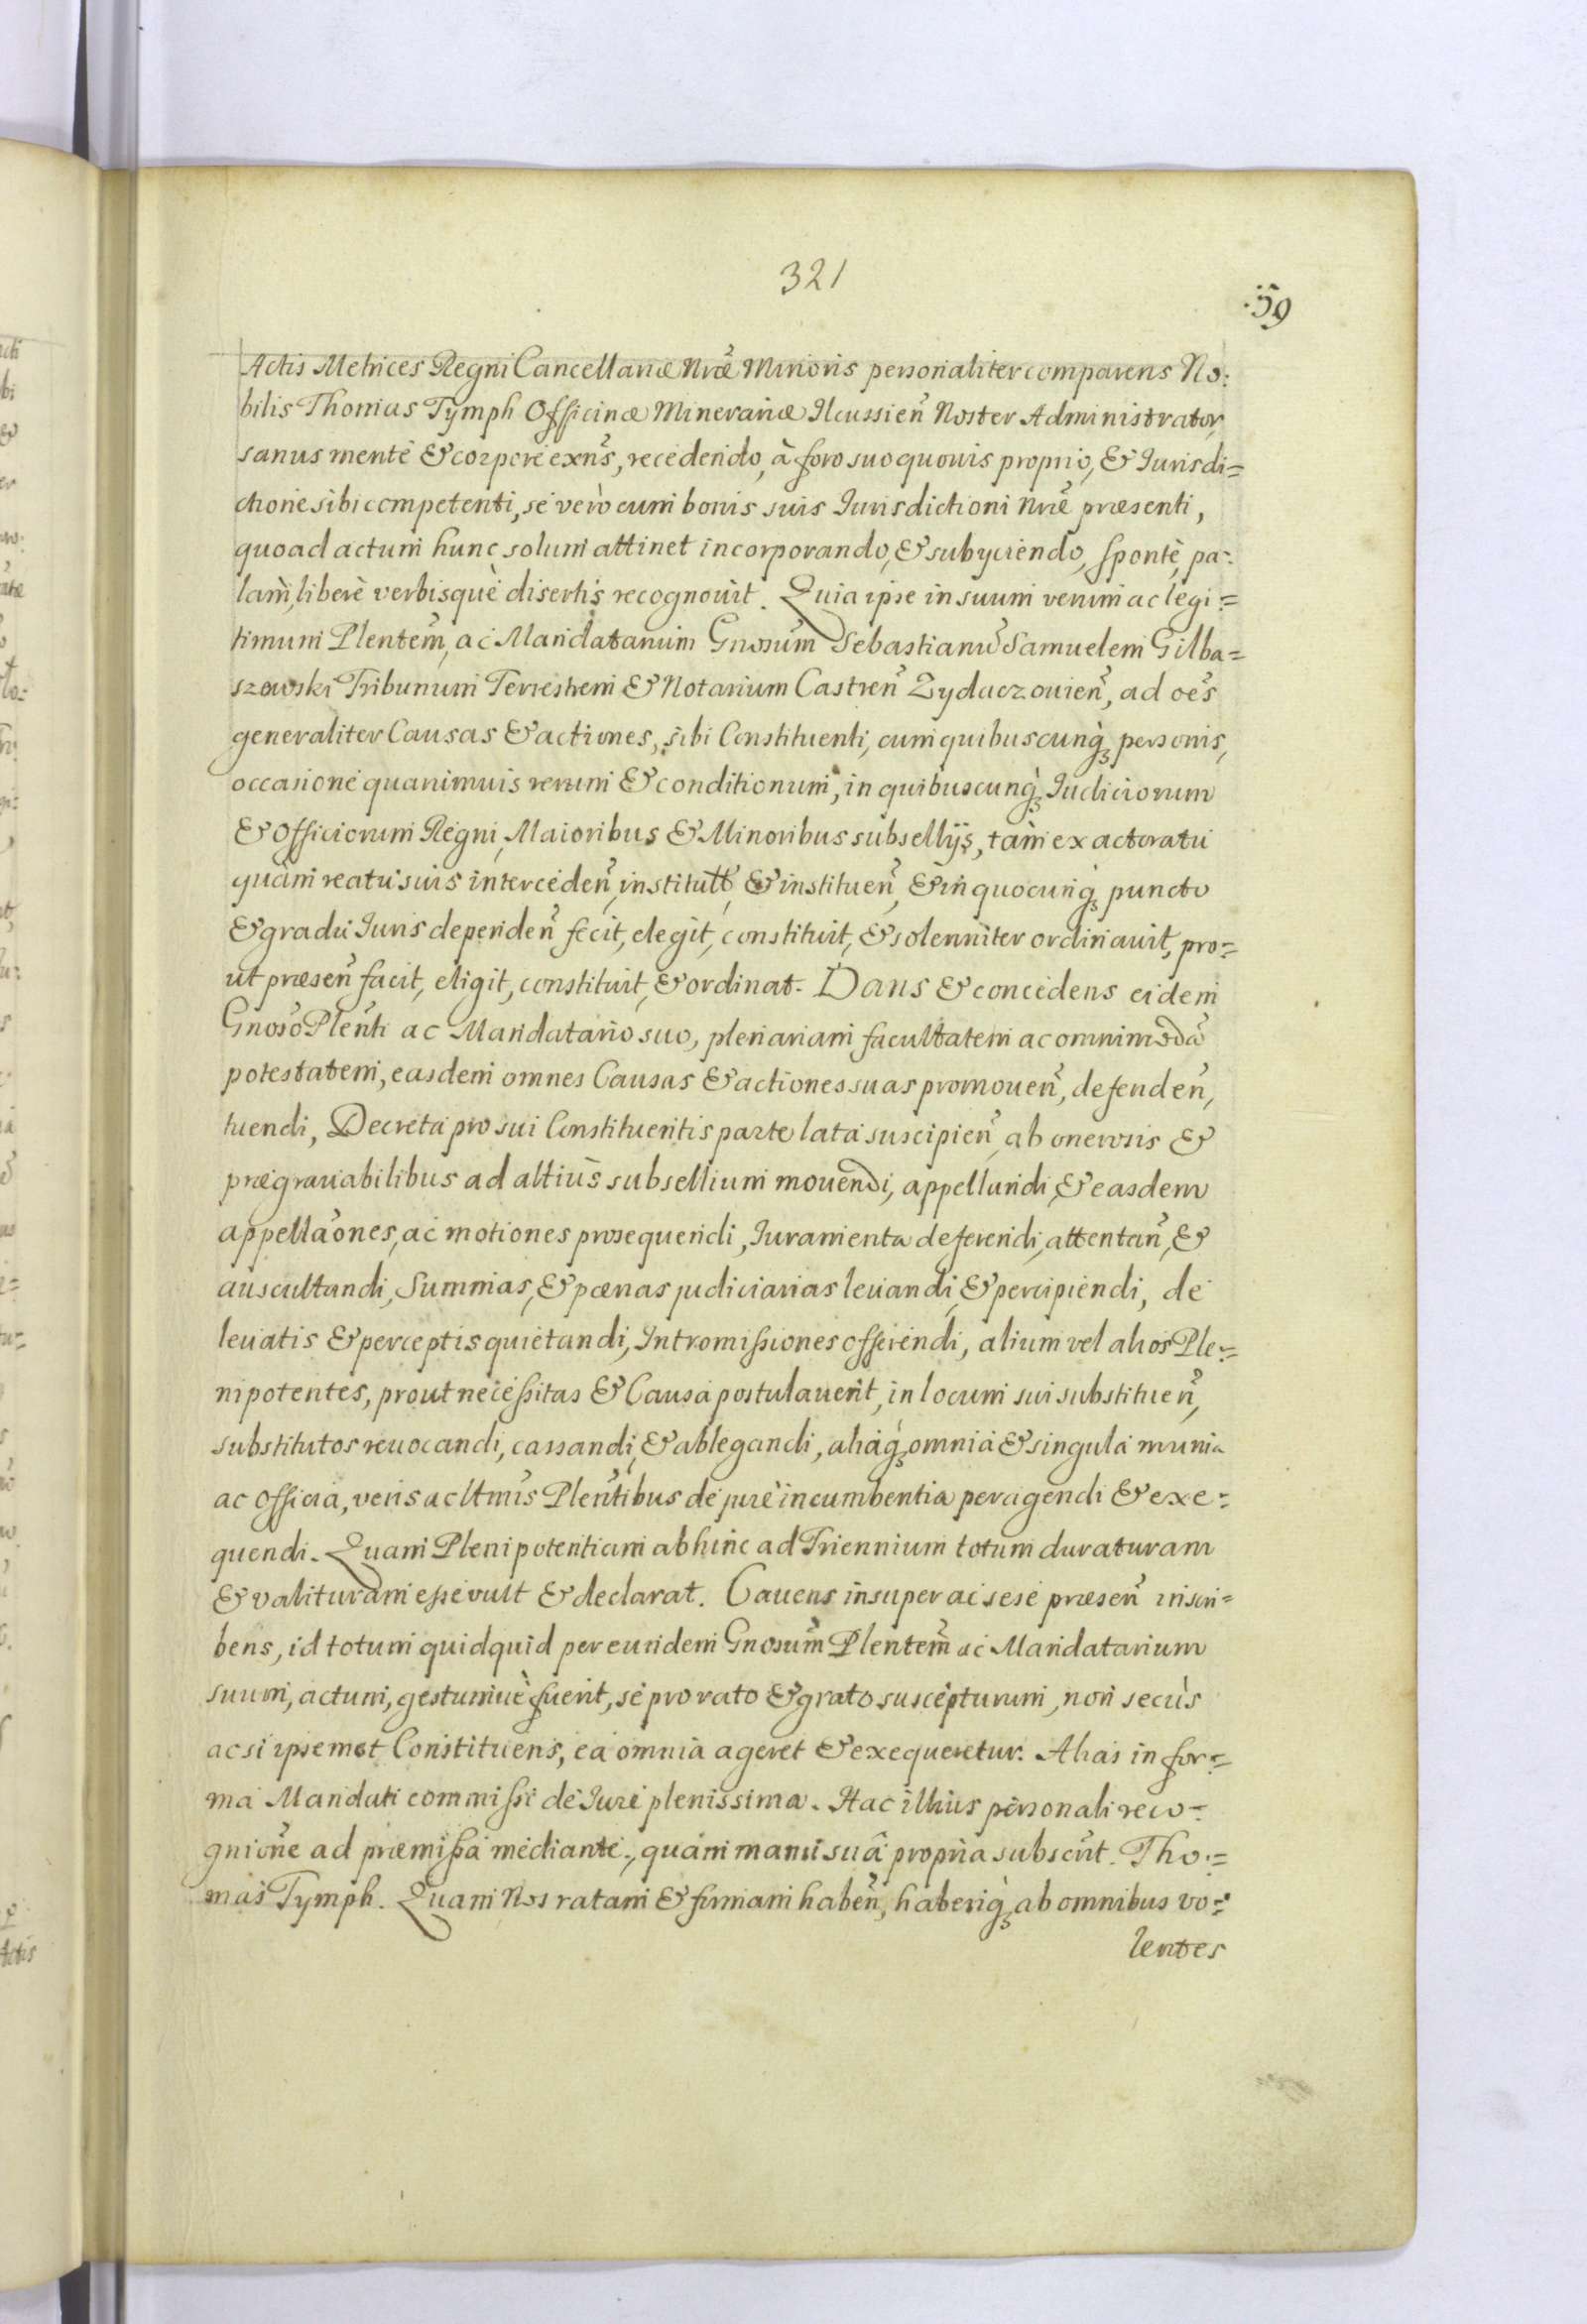 321
59
Actis Metrices Regni Cancellariæ Nræ Minoris personaliter comparens No:
bilis Thomas Tymph Officinæ Minerariæ Ilcussieñ Noster Administrator,
sanus mente & corpore exns, recedendo, à foro suo quouis proprio, & Iurisdi=
ctione sibi competenti, se verò cum bonis suis Iurisdictioni Nræ præsenti,
quoad actum hunc solum attinet incorporando, & subyciendo, spontè, pa:
làm, liberè verbisquè disertis recognouit. Quia ipse in suum verum ac legi=
timum Plentem, ac Mandatarium Gnosum Sebastianũ Samuelem Gilba=
szowski Tribunum Terrestrem & Notarium Castreñ Zydaczouieñ, ad oẽs
generaliter Causas & actiones, sibi Constituenti, cum quibuscunq́ꝫ personis,
occasione quarumuis rerum & conditionum, in quibuscunq́ꝫ Iudiciorum
& Officiorum Regni, Maioribus & Minoribus subsellijs, tàm ex actoratu
quàm reatu suis intercedeñ, institutt, & institueñ, & in quocunq́ꝫ puncto
& gradu Iuris dependeñ fecit, elegit, constituit, & solenniter ordinauit, pro=
ut præseñ facit, eligit, constituit, & ordinat. Dans & concedens eidem
Gnoso Plenti ac Mandatario suo, plenariam facultatem ac omnimodã
potestatem, easdem omnes Causas & actiones suas promoueñ, defendeñ,
tuendi, Decreta pro sui Constituentis parte lata suscipieñ, ab onerosis &
prægrauabilibus ad altius subsellium mouendi, appellandi, & easdem
appellãones, ac motiones prosequendi, Iuramenta deferendi, attentañ, &
auscultandi, Summas, & pœnas judiciarias leuandi, & percipiendi, de
leuatis & perceptis quietandi, Intromissiones offerendi, alium vel alios Ple=
nipotentes, prout necessitas & Causa postulauerit, in locum sui substitueñ,
substitutos reuocandi, cassandi, & ablegandi, aliaq́ꝫ omnia & singula munia
ac Officia, veris ac ltmis Plentibus de jure incumbentia peragendi & exe=
quendi. Quam Plenipotentiam abhinc ad Triennium totum duraturam
& valituram esse vult & declarat. Cauens insuper ac sese præseñ inscri=
bens, id totum quidquid per eundem Gnosum Plentem ac Mandatarium
suum, actum, gestumuè fuerit, se pro rato & grato suscepturum, non secùs
acsi ipsemet Constituens, ea omnia ageret & exequeretur. Alias in for=
ma Mandati commissi de Iure plenissima. Hac illius personali reco=
gniõne ad præmissa mediante, quam manu suâ propria subscrit. Tho=
mas Tymph. Quam Nos ratam & firmam habeñ, haberiq́ꝫ ab omnibus vo=
lentes